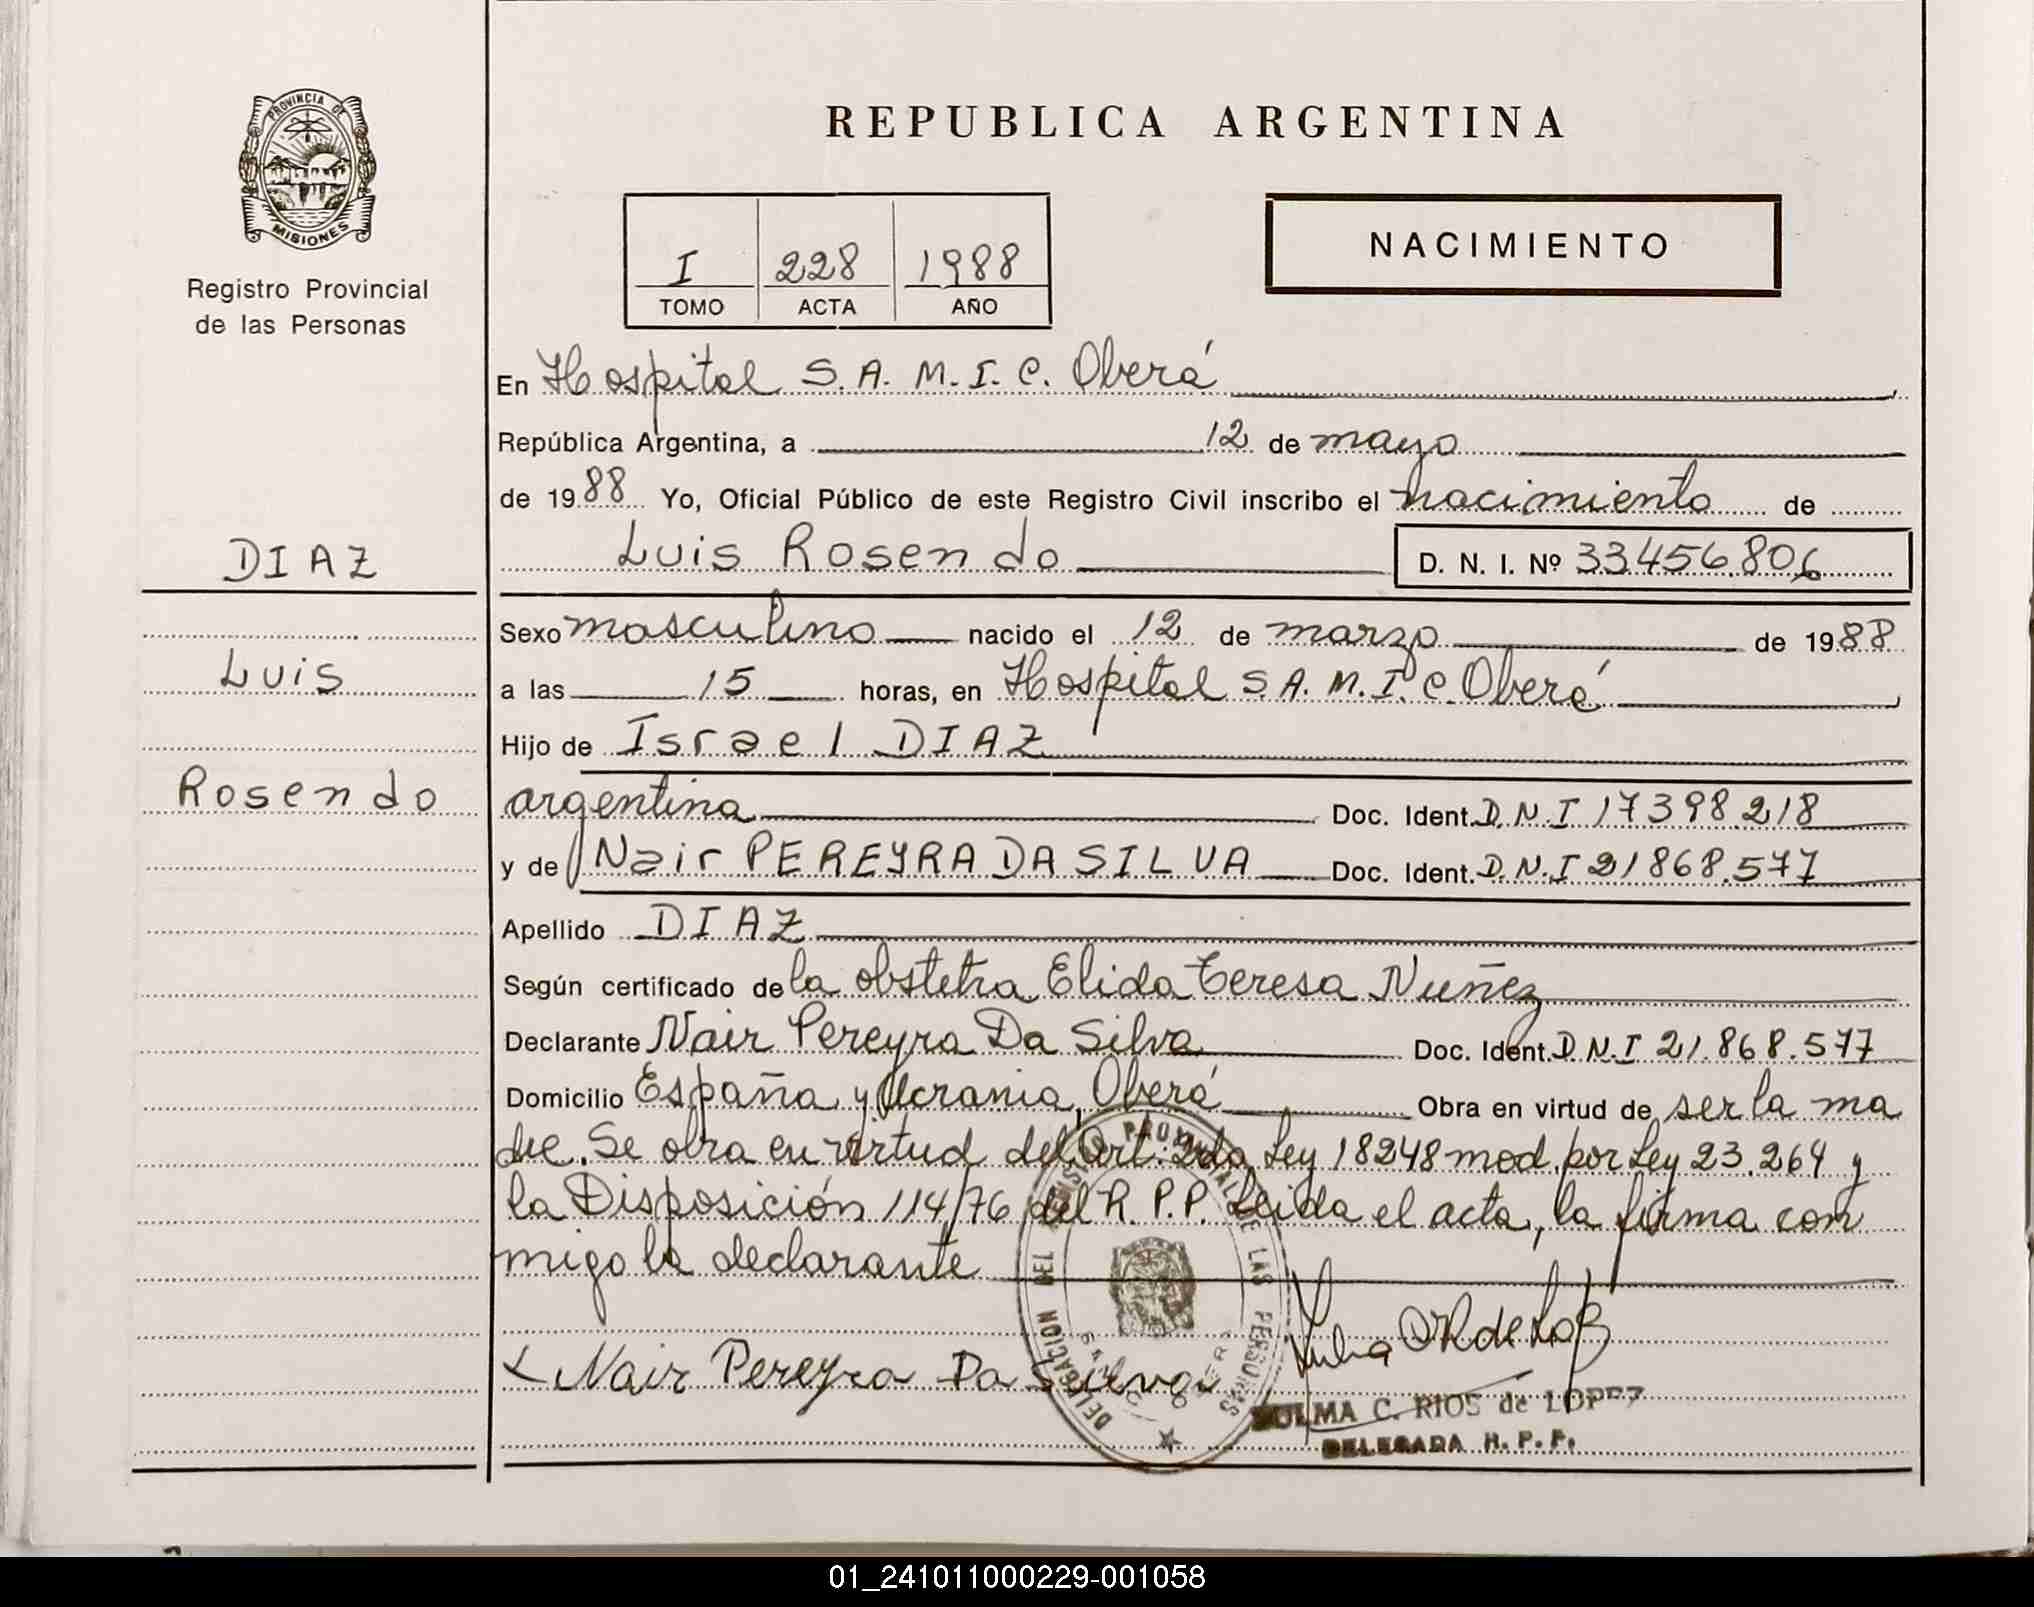 PROVINCIA DE
MISIONES
Registro Provincial
de las Personas
DIAZ
Luis
Rosendo
REPUBLICA ARGENTINA
I 228 1988
TOMO ACTA AÑO
NACIMIENTO
En Hospital S.A.M.I.C. Oberá
República Argentina, a 12 de mayo
de 1988 Yo, Oficial Público de este Registro Civil inscribo el nacimiento de
Luis Rosendo D. N. I. Nº 33.456.806
Sexo masculino nacido el 12 de marzo de 1988
a las 15 horas, en Hospital S.A.M.I.C. Oberá
Hijo de Israel DIAZ
argentina Doc. Ident. D.N.I 17398.218
y de Nair PEREYRA DA SILVA Doc. Ident. D.N.I 21868.577
Apellido DIAZ
Según certificado de la obstetra Elida Teresa Nuñez
Declarante Nair Pereyra Da Silva Doc. Ident. D.N.I 21.868.577
Domicilio España y Ucrania, Oberá Obra en virtud de ser la ma
dre. Se obra en virtud del Art. 2do Ley 18248 mod. por Ley 23.264 y
la Disposición 114/76 del R.P.P. Leida el acta, la firma con
migo la declarante
DELEGACION DEL REGISTRO PROVINCIAL DE LAS PERSONAS
x Nair Pereyra Da Silva
ZULMA C. RIOS de LOPEZ
DELEGADA R. P. P.
01_241011000229-001058